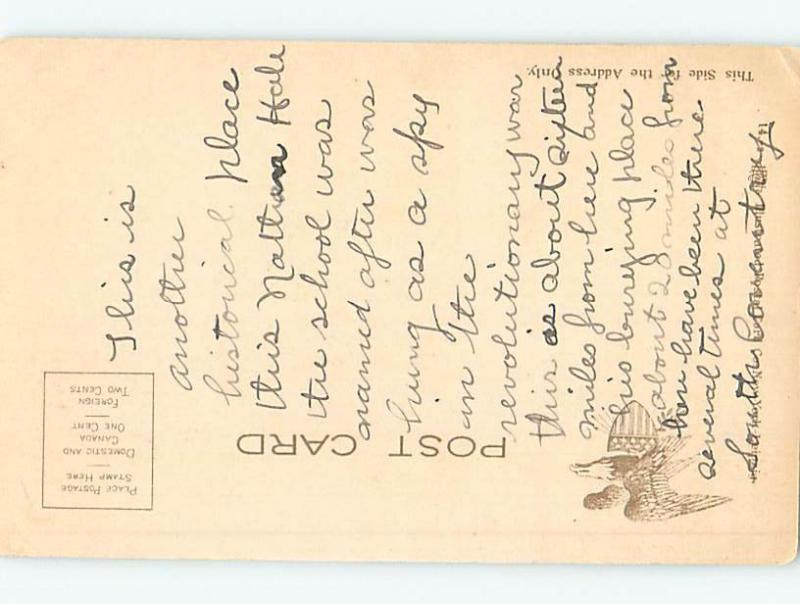 This is
another
historical place
this Nathan Hale
the school was
named after was
hung as a spy
in the
revolutionary war
this is about sixteen
miles from here and
his burying place
about 20 miles from
here have been there
several times at
South Coventry
POST CARD
This Side for the Address Only.
PLACE POSTAGE
STAMP HERE
DOMESTIC AND
CANADA
ONE CENT
FOREIGN
TWO CENTS